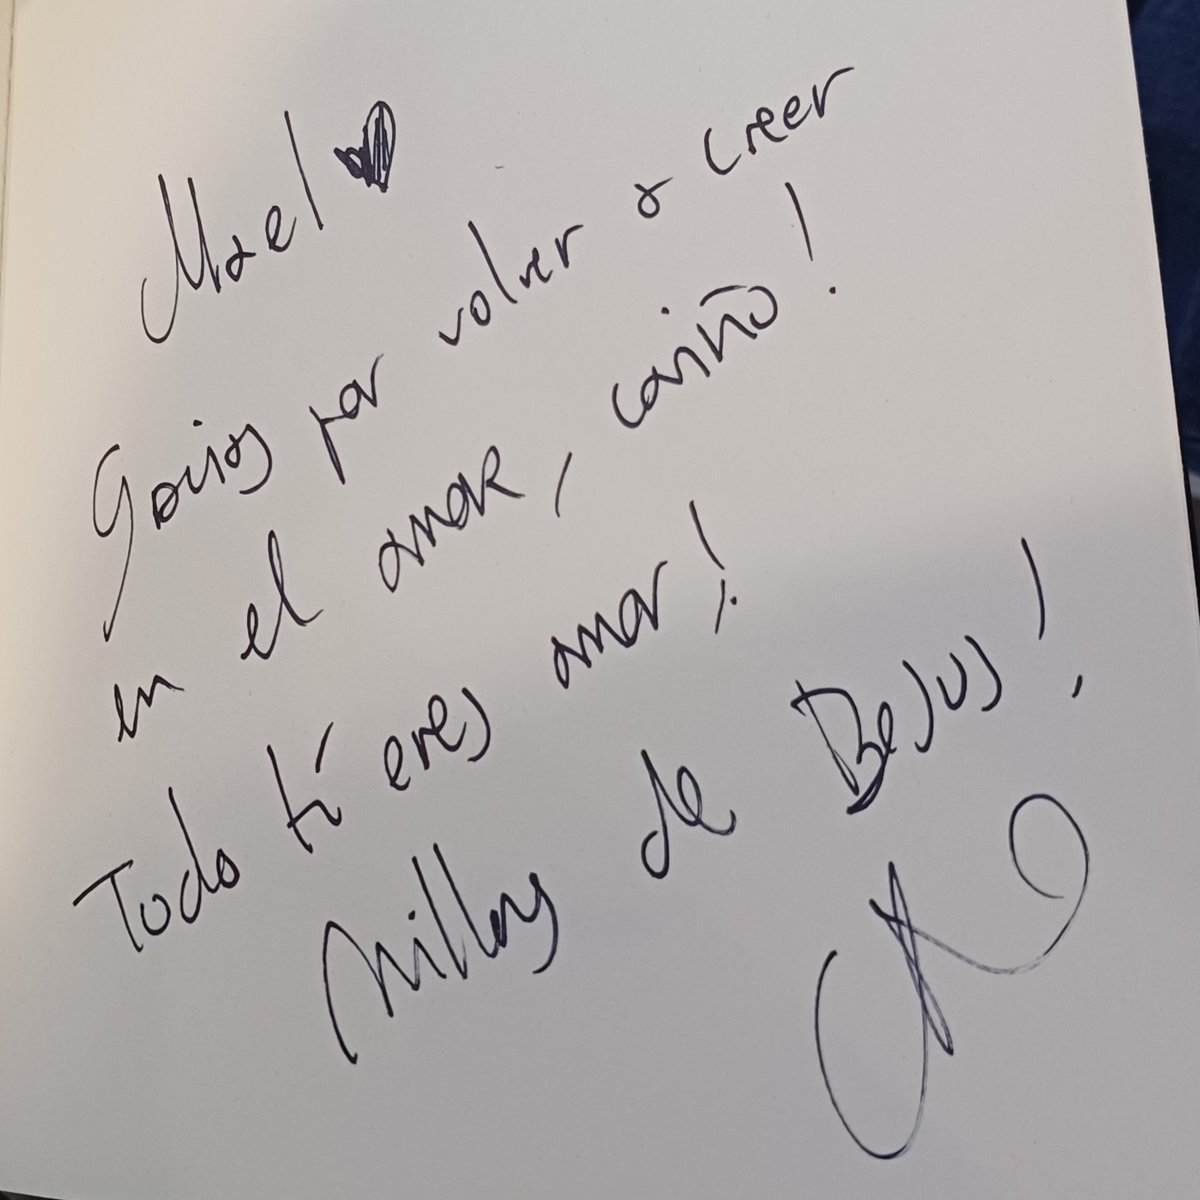 Mael ♥
Gracias por volver a creer
en el amor, cariño!
Todo tú eres amor!
Millones de Besos!